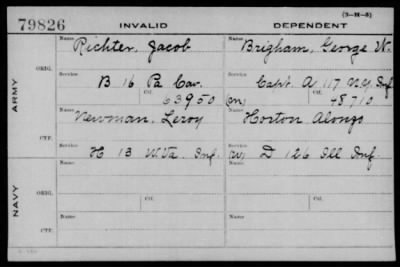 (3—H—8)
79826 INVALID DEPENDENT
Name Richter, Jacob Name Brigham, George W.
ORIG.
Service B 16 Pa Cav. Service Capt. A 117 N.Y. Inf.
Ctf. 63950 (m) Ctf. 48710
ARMY
Name Newman, Leroy Name Horton Alonzo
CTF.
Service H 13 W.Va. Inf. Service (W) D 126 Ill Inf.
Name Name
ORIG.
Service Ctf. Service Ctf.
NAVY
Name Name
CTF.
Service Service